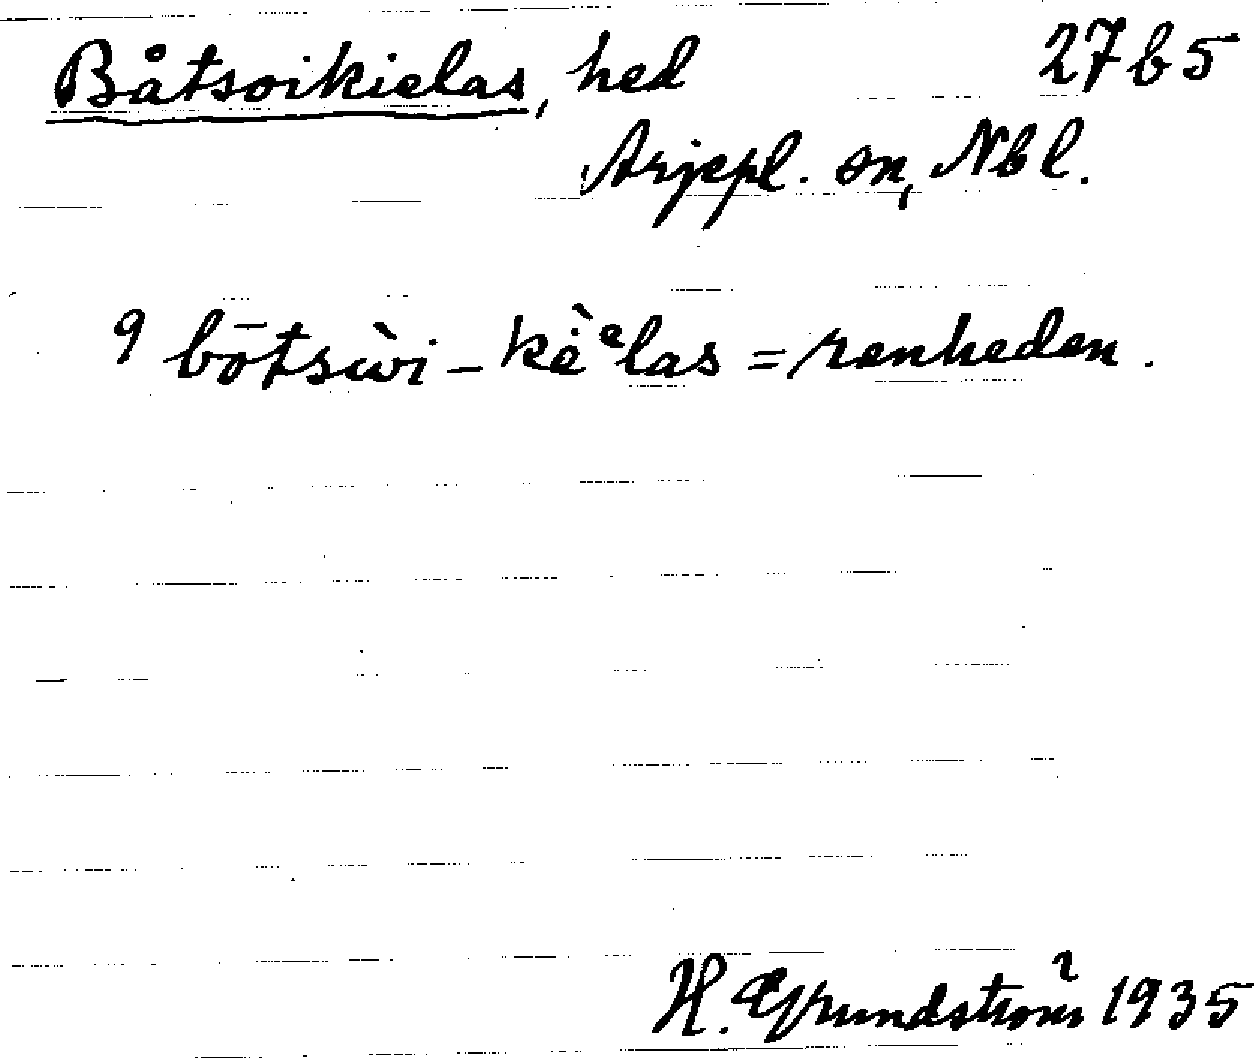 Båtsoikielas, hed 27b5
Arjepl. sn, Nbl.
9 bōtsùi - kè̀ᵉlas = renheden.
H. Grundström 1935